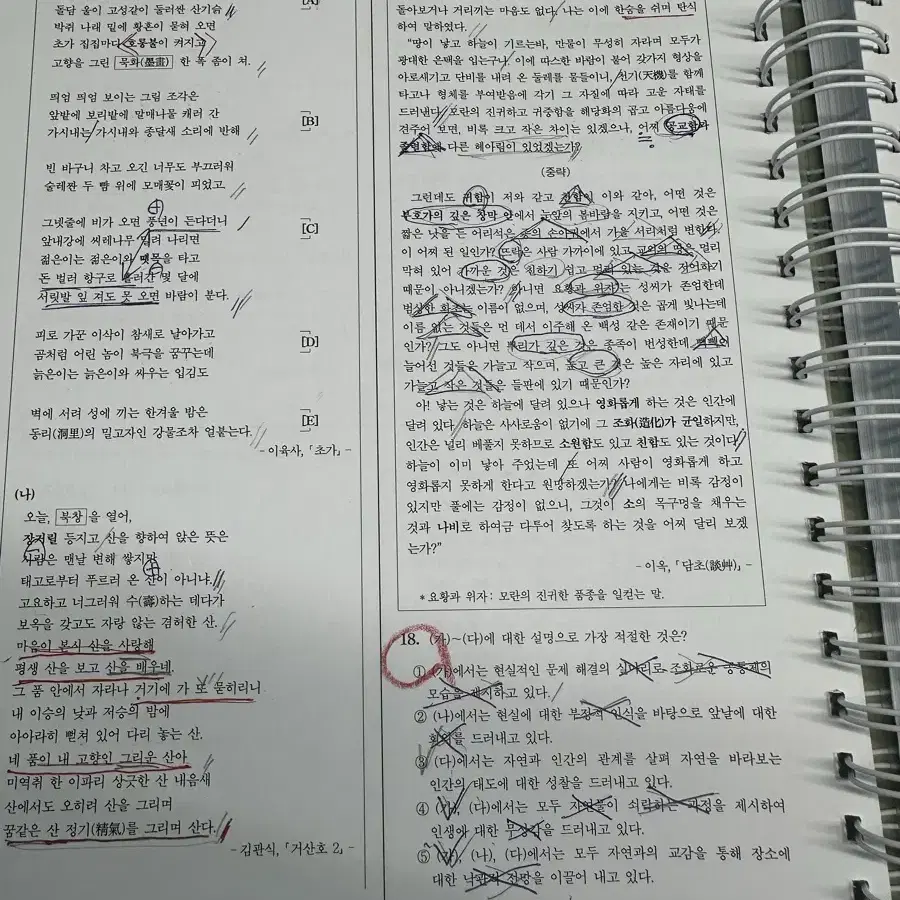 [A]
돌담 울이 고성같이 둘러싼 산기슭
박쥐 나래 밑에 황혼이 묻혀 오면
초가 집집마다 호롱불이 켜지고
고향을 그린 묵화(墨畫) 한 폭 좀이 쳐.
띄엄 띄엄 보이는 그림 조각은
앞밭에 보리밭에 말매나물 캐러 간
[B]
가시내는 가시내와 종달새 소리에 반해
빈 바구니 차고 오긴 너무도 부끄러워
술레짠 두 뺨 위에 모매꽃이 피었고.
그넷줄에 비가 오면 풍년이 든다더니
[C]
앞내강에 씨레나무 밀려 나리면
젊은이는 젊은이와 뗏목을 타고
돈 벌러 항구로 흘러간 몇 달에
서릿발 잎 져도 못 오면 바람이 분다.
피로 가꾼 이삭이 참새로 날아가고
[D]
곰처럼 어린 놈이 북극을 꿈꾸는데
늙은이는 늙은이와 싸우는 입김도
벽에 서려 성에 끼는 한겨울 밤은
[E]
동리(洞里)의 밀고자인 강물조차 얼붙는다.
- 이육사, 「초가」 -
(나)
오늘, 북창을 열어,
장지릴 등지고 산을 향하여 앉은 뜻은
사람은 맨날 변해 쌓지만
태고로부터 푸르러 온 산이 아니냐.
고요하고 너그러워 수(壽)하는 데다가
보옥을 갖고도 자랑 않는 겸허한 산.
마음이 본시 산을 사랑해
평생 산을 보고 산을 배우네.
그 품 안에서 자라나 거기에 가 또 묻히리니
내 이승의 낮과 저승의 밤에
아아라히 뻗쳐 있어 다리 놓는 산.
네 품이 내 고향인 그리운 산아
미역취 한 이파리 상긋한 산 내음새
산에서도 오히려 산을 그리며
꿈같은 산 정기(精氣)를 그리며 산다.
- 김관식, 「거산호 2」 -
돌아보거나 거리끼는 마음도 없다. 나는 이에 한숨을 쉬며 탄식
하여 말하였다.
“땅이 낳고 하늘이 기르는바, 만물이 무성히 자라며 모두가
광대한 은택을 입는구나. 이에 따스한 바람이 불어 갖가지 형상을
아로새기고 단비를 내려 온 둘레를 물들이니, 천기(天機)를 함께
타고나 형체를 부여받음에 각기 그 자질에 따라 고운 자태를
드러낸다. 모란의 진귀하고 귀중함을 해당화의 곱고 아름다움에
견주어 보면, 비록 크고 작은 차이는 있겠으나, 어찌 공교함과
졸렬함에 다른 헤아림이 있었겠는가?
(중략)
그런데도 귀함이 저와 같고 천함이 이와 같아, 어떤 것은
부호가의 깊은 장막 안에서 눈앞의 봄바람을 지키고, 어떤 것은
짧은 낫을 든 어리석은 종의 손아귀에서 가을 서리처럼 변한다.
이 어찌 된 일인가? 뜨락은 사람 가까이에 있고 교외의 땅은 멀리
막혀 있어 가까운 것은 친하기 쉽고 멀리 있는 것을 저어하기
때문이 아니겠는가? 아니면 요황과 위자는 성씨가 존엄한데
범상한 화초는 이름이 없으며, 성씨가 존엄한 것은 곱게 빛나는데
이름 없는 것들은 먼 데서 이주해 온 백성 같은 존재이기 때문
인가? 그도 아니면 뿌리가 깊은 것은 종족이 번성한데 빽빽이
늘어선 것들은 가늘고 작으며, 높고 큰 것은 높은 자리에 있고
가늘고 작은 것들은 들판에 있기 때문인가?
아! 낳는 것은 하늘에 달려 있으나 영화롭게 하는 것은 인간에
달려 있다. 하늘은 사사로움이 없기에 그 조화(造化)가 균일하지만,
인간은 널리 베풀지 못하므로 소원함도 있고 친함도 있는 것이다.
하늘이 이미 낳아 주었는데 또 어찌 사람이 영화롭게 하고
영화롭지 못하게 한다고 원망하겠는가? 나에게는 비록 감정이
있지만 풀에는 감정이 없으니, 그것이 소의 목구멍을 채우는
것과 나비로 하여금 다투어 찾도록 하는 것을 어찌 달리 보겠
는가?”
- 이옥, 「담초(談艸)」 -
* 요황과 위자: 모란의 진귀한 품종을 일컫는 말.
18. (가)～(다)에 대한 설명으로 가장 적절한 것은?
① (가)에서는 현실적인 문제 해결의 실마리로 조화로운 공동체의
모습을 제시하고 있다.
② (나)에서는 현실에 대한 부정적 인식을 바탕으로 앞날에 대한
회의를 드러내고 있다.
③ (다)에서는 자연과 인간의 관계를 살펴 자연을 바라보는
인간의 태도에 대한 성찰을 드러내고 있다.
④ (가), (다)에서는 모두 자연물이 쇠락하는 과정을 제시하여
인생에 대한 무상감을 드러내고 있다.
⑤ (가), (나), (다)에서는 모두 자연과의 교감을 통해 장소에
대한 낙관적 전망을 이끌어 내고 있다.